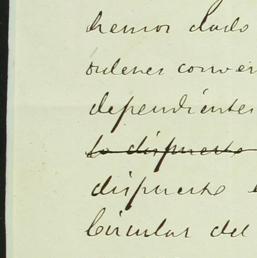 hemos dado
ordenes conven
dependientes
lo dispuesto
dispuesto
Circular del